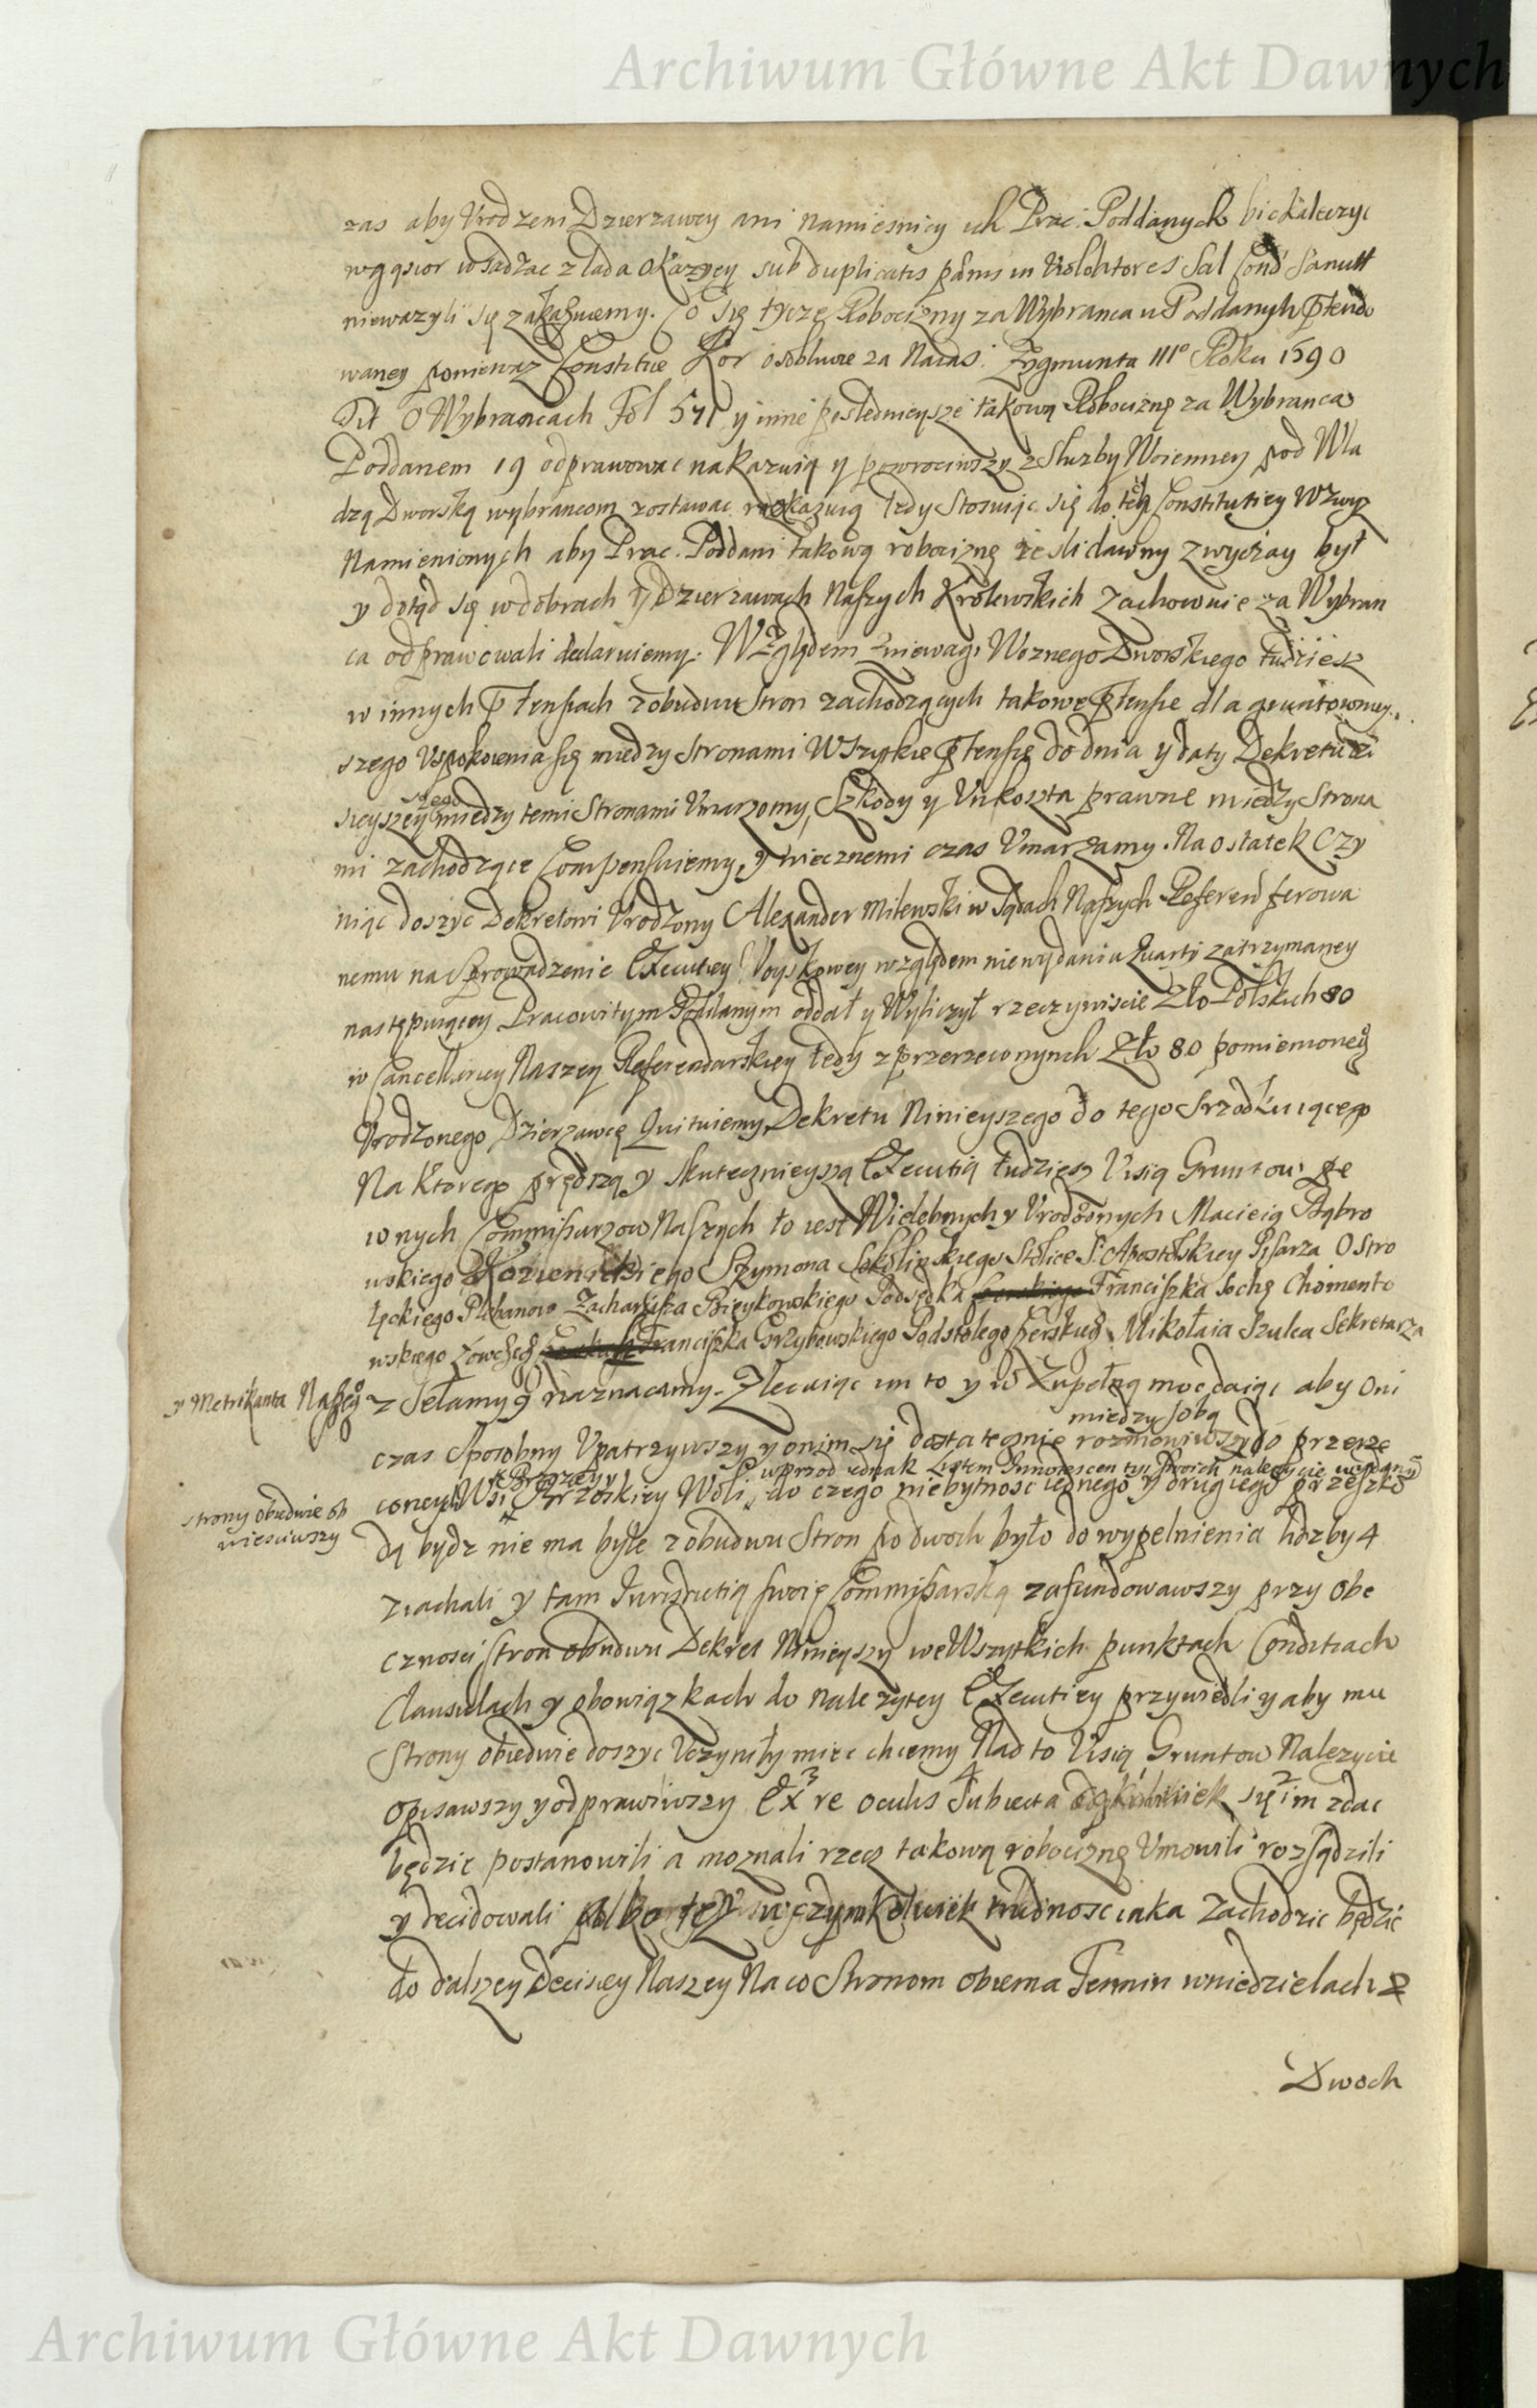 Archiwum Główne Akt Dawnych
zas aby Urodzeni Dzierzawcy ani namiesnicy ich Prac: Poddanych bic kaleczyc
w gąsior wsadzac z lada okazyey sub duplicatis
niewazyli się zakazuiemy. Co się tycze Robocizny za Wybranca u Poddanych
waney poniewaz Constitue Kor osobliwie za Zygmunta III° Roku 1590
Tit O Wybrancach Fol 571 y inne poslednieysze takową Robociznę za Wybranca
Poddanem 19 odprawowac nakazuią y powrociwszy z Służby Woienney pod Wła
dzą Dworską wybrancom zostawac rozkazuią tedy Stosuiąc się do tych Constitutiey Wzwyz
Namienionych aby Prac. Poddani takową robociznę ieśli dawny zwyczay był
y dotąd się w dobrach y Dzierzawach Naszych Krolewskich zachowuie za Wybran
ca odprawowali declaruiemy. Względem zniewagi Woznego Dworskiego tudziesz
w innych z obudwu Stron zachodzących takowe dla
szego Uspokoienia się miedzy Stronami Wszytkie do dnia y daty Dekretu
nieyszego miedzy temi Stronami Umarzomy, Szkody y Unkoszta prawne miedzy Strona
mi zachodzące Compensuiemy, y wiecznemi czas Umarzamy. Na ostatek Czy
niąc doszyc Dekretowi Urodzony Alexander Milewski w Sądach Naszych Referen ferowa
nemu na Sprowadzenie Executiey Woyskowey względem niewydania Quarti zatrzymaney
następuiącey Pracowitym Poddanym oddał y Wyliczył rzeczywiscie Zło Polskich 80
w Cancellariey Naszey Referendarskiey tedy z przerzeczonynch Zło 80 pomienioneg
Urodzonego Dzierzawcę Quituiemy, Dekretu Ninieyszego do tego Srzodkuiącego
Na Ktorego prędszą y skutecznieyszą Executią tudziesz Visią Gruntow pe
wnych Commissarzow Naszych to iest Wielebnych y Urodzonych Macieia Dąbro
wskiego Kozienickiego Szymona Sokolinskiego Stolice S. Apostolskiey Pisarza Ostro
łęckiego Plebanow Zachariasza Boiękowskiego Podsędka Franciszka Sochę Chomento
wskiego Łowczeg Franciszka Grzybowskiego Podstolego Mikołaia Szulca Sekretarza
y Metrikanta Naszeg z Sełamy y naznaczamy. Zlecaiąc im to y w Zupełną moc daiąc aby oni
miedzy sobą
czas sposobny Upatrzywszy y onim się dostatecznie rozmowiwszy do przerze
Brzozey
wprzod iednak Listem Innotescen tyi swoich nalezycie
coney Wsi Brzoskiey Woli, do czego niebytnosc iednego y drugiego przeszko
strony obiedwie ob
wiesciwszy
dą bydz nie ma byłe z obudwu Stron po dwoch było do wypełnienia liczby 4
ziachali y tam Iurisdictią swoię Commissarską zafundowawszy przy obe
cznosci Stron obudwu Dekret Ninieyszy we Wszytkich punktach Conditiach
Clausulach y obowiązkach do nalezytey Executiey przywiedli y aby mu
Strony obiedwie doszyc Uczyniły miec chcemy Nad to Visią Gruntow Nalezycie
opisawszy y odprawiwszy Ex re oculis Subiecta się im zdac
3 4 2
będzie postanowili a moznali rzecz takową robociznę Umowili rozsądzili
y decidowali albo tez w czymkolwiek trudnosc iaka zachodzic będzie
do dalszey Decisiey Naszey Na co Stronom obiema Termin w niedzielach 2
Dwoch
Archiwum Główne Akt Dawnych